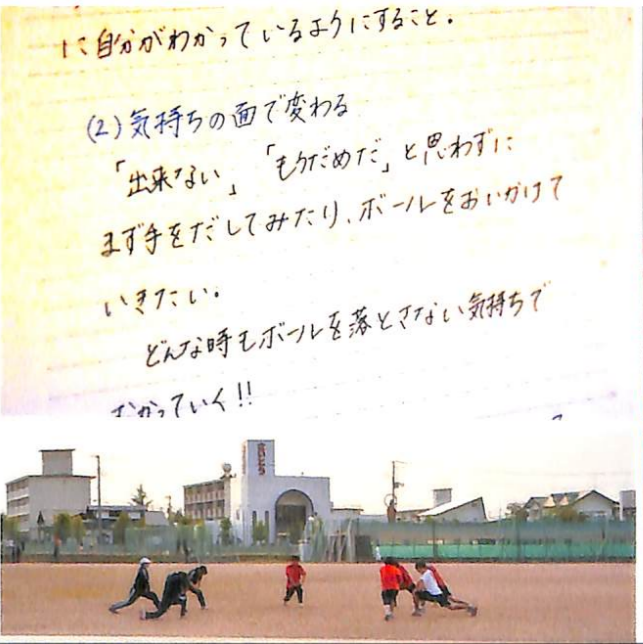 に自分がわかっているようにすること。
(2)気持ちの面で変わる
「出来ない」「もうだめだ」と思わずに
まず手をだしてみたり、ボールをおいかけて
いきたい。
どんな時もボールを落とさない気持ちで
むかっていく!!